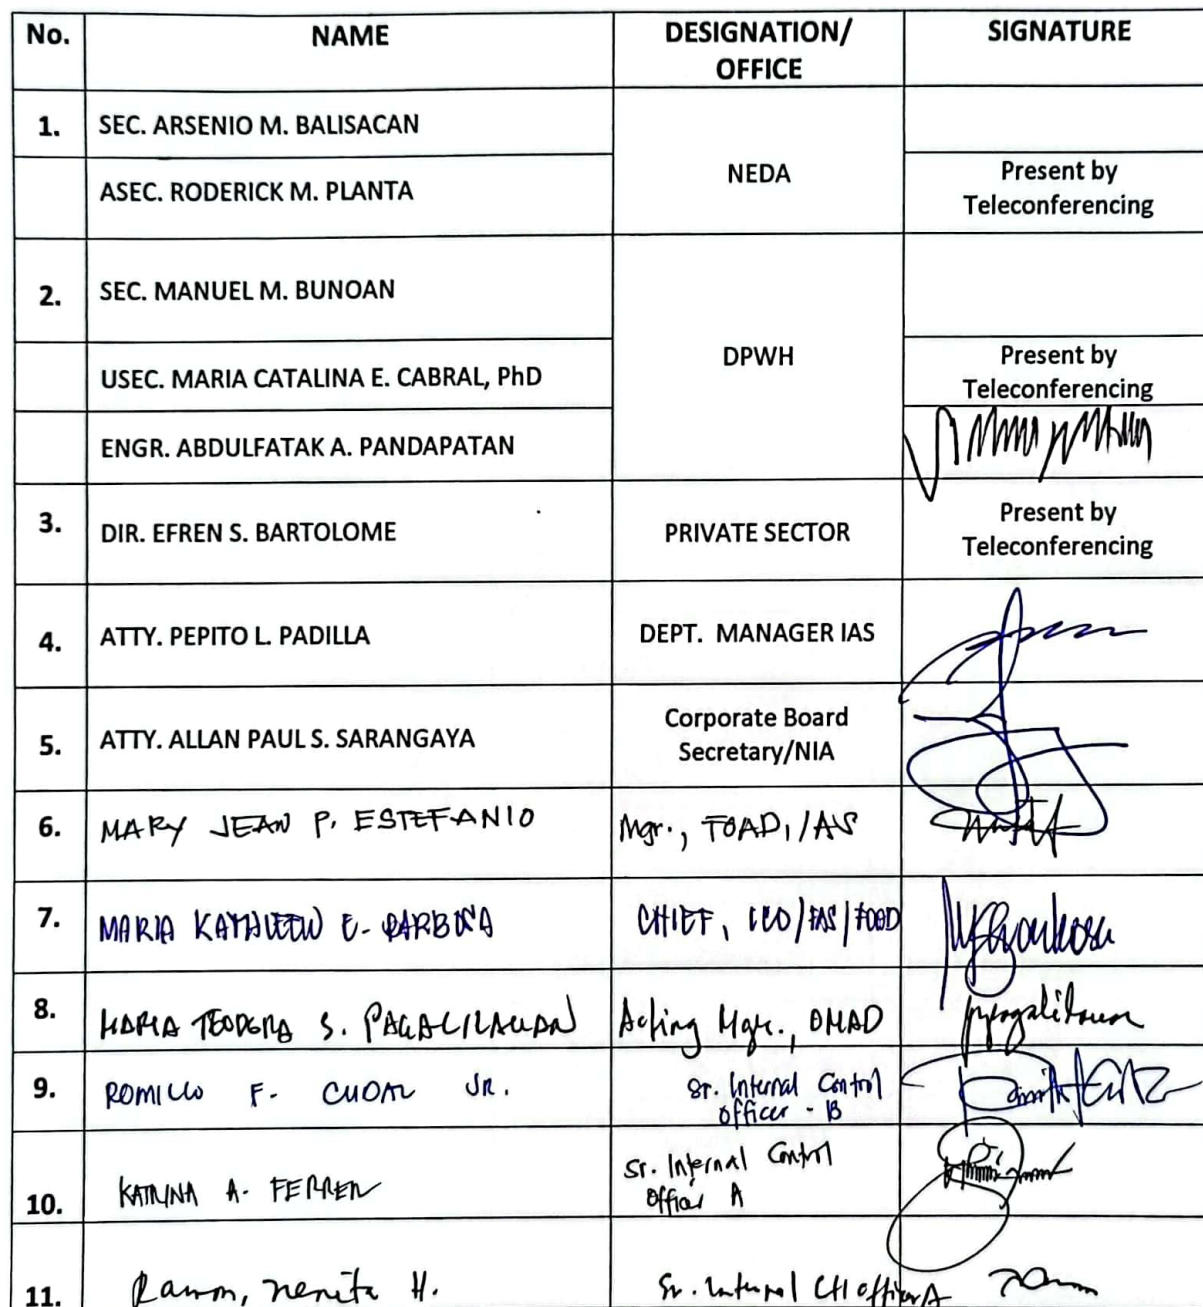 No. NAME DESIGNATION/ SIGNATURE
OFFICE
1. SEC. ARSENIO M. BALISACAN
NEDA
ASEC. RODERICK M. PLANTA
Present by
Teleconferencing
2. SEC. MANUEL M. BUNOAN
DPWH
USEC. MARIA CATALINA E. CABRAL, PhD
Present by
Teleconferencing
ENGR. ABDULFATAK A. PANDAPATAN
3. DIR. EFREN S. BARTOLOME PRIVATE SECTOR
Present by
Teleconferencing
4. ATTY. PEPITO L. PADILLA DEPT. MANAGER IAS
5. ATTY. ALLAN PAUL S. SARANGAYA
Corporate Board
Secretary/NIA
6. MARY JEAN P. ESTEFANIO Mgr.,
7. MARIA KATHLEEN E. CHIEF,
8. MARIA TEODORA S. Acting Mgr., OMAD
9. ROMILLO F. JR. Sr. Internal Control
Officer - B
10. KATRINA A. FERRER Sr. Internal Control
Officer A
11. Ramon, Nenita H. Sr. Internal Ctl Officer A